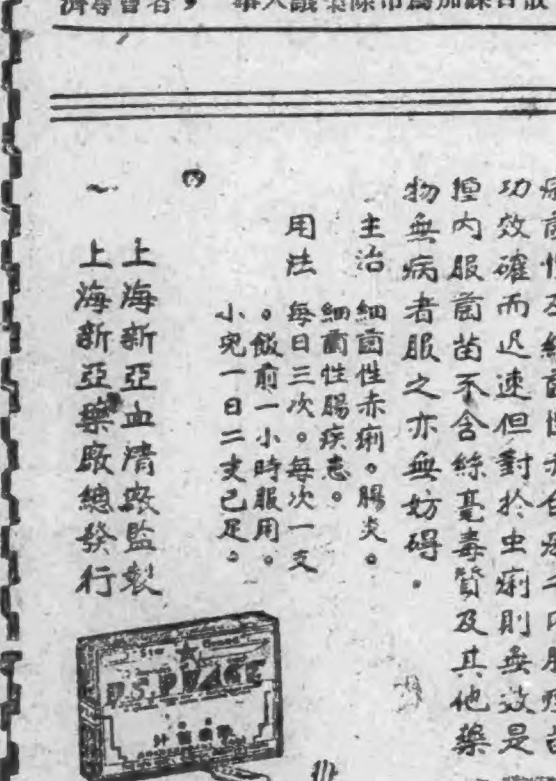 功效確而迅速但對於虫痢則無效是
種內服菌苗不含絲毫毒質及其他藥
物無病者服之亦無妨碍。
主治 細菌性赤痢。腸炎。
細菌性腸疾患。
用法 每日三次。每次一支
。飯前一小時服用。
小兒一日二支已足。
上海新亞血清廠監製
上海新亞藥廠總發行